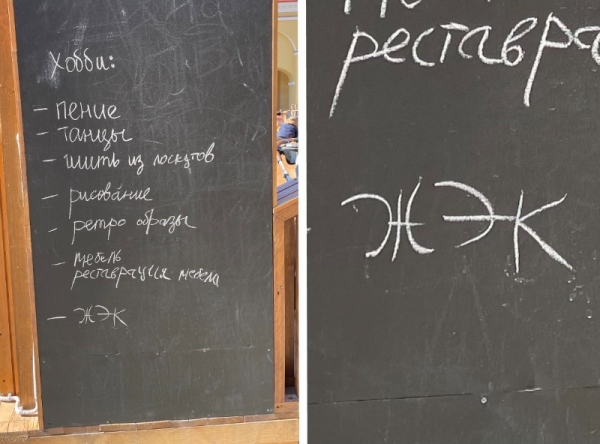 Хобби:
– пение
– танцы
– шить из лоскутов
– рисование
– ретро образы
– мебель
реставрация мебели
– ЖЭК
реставра
ЖЭК